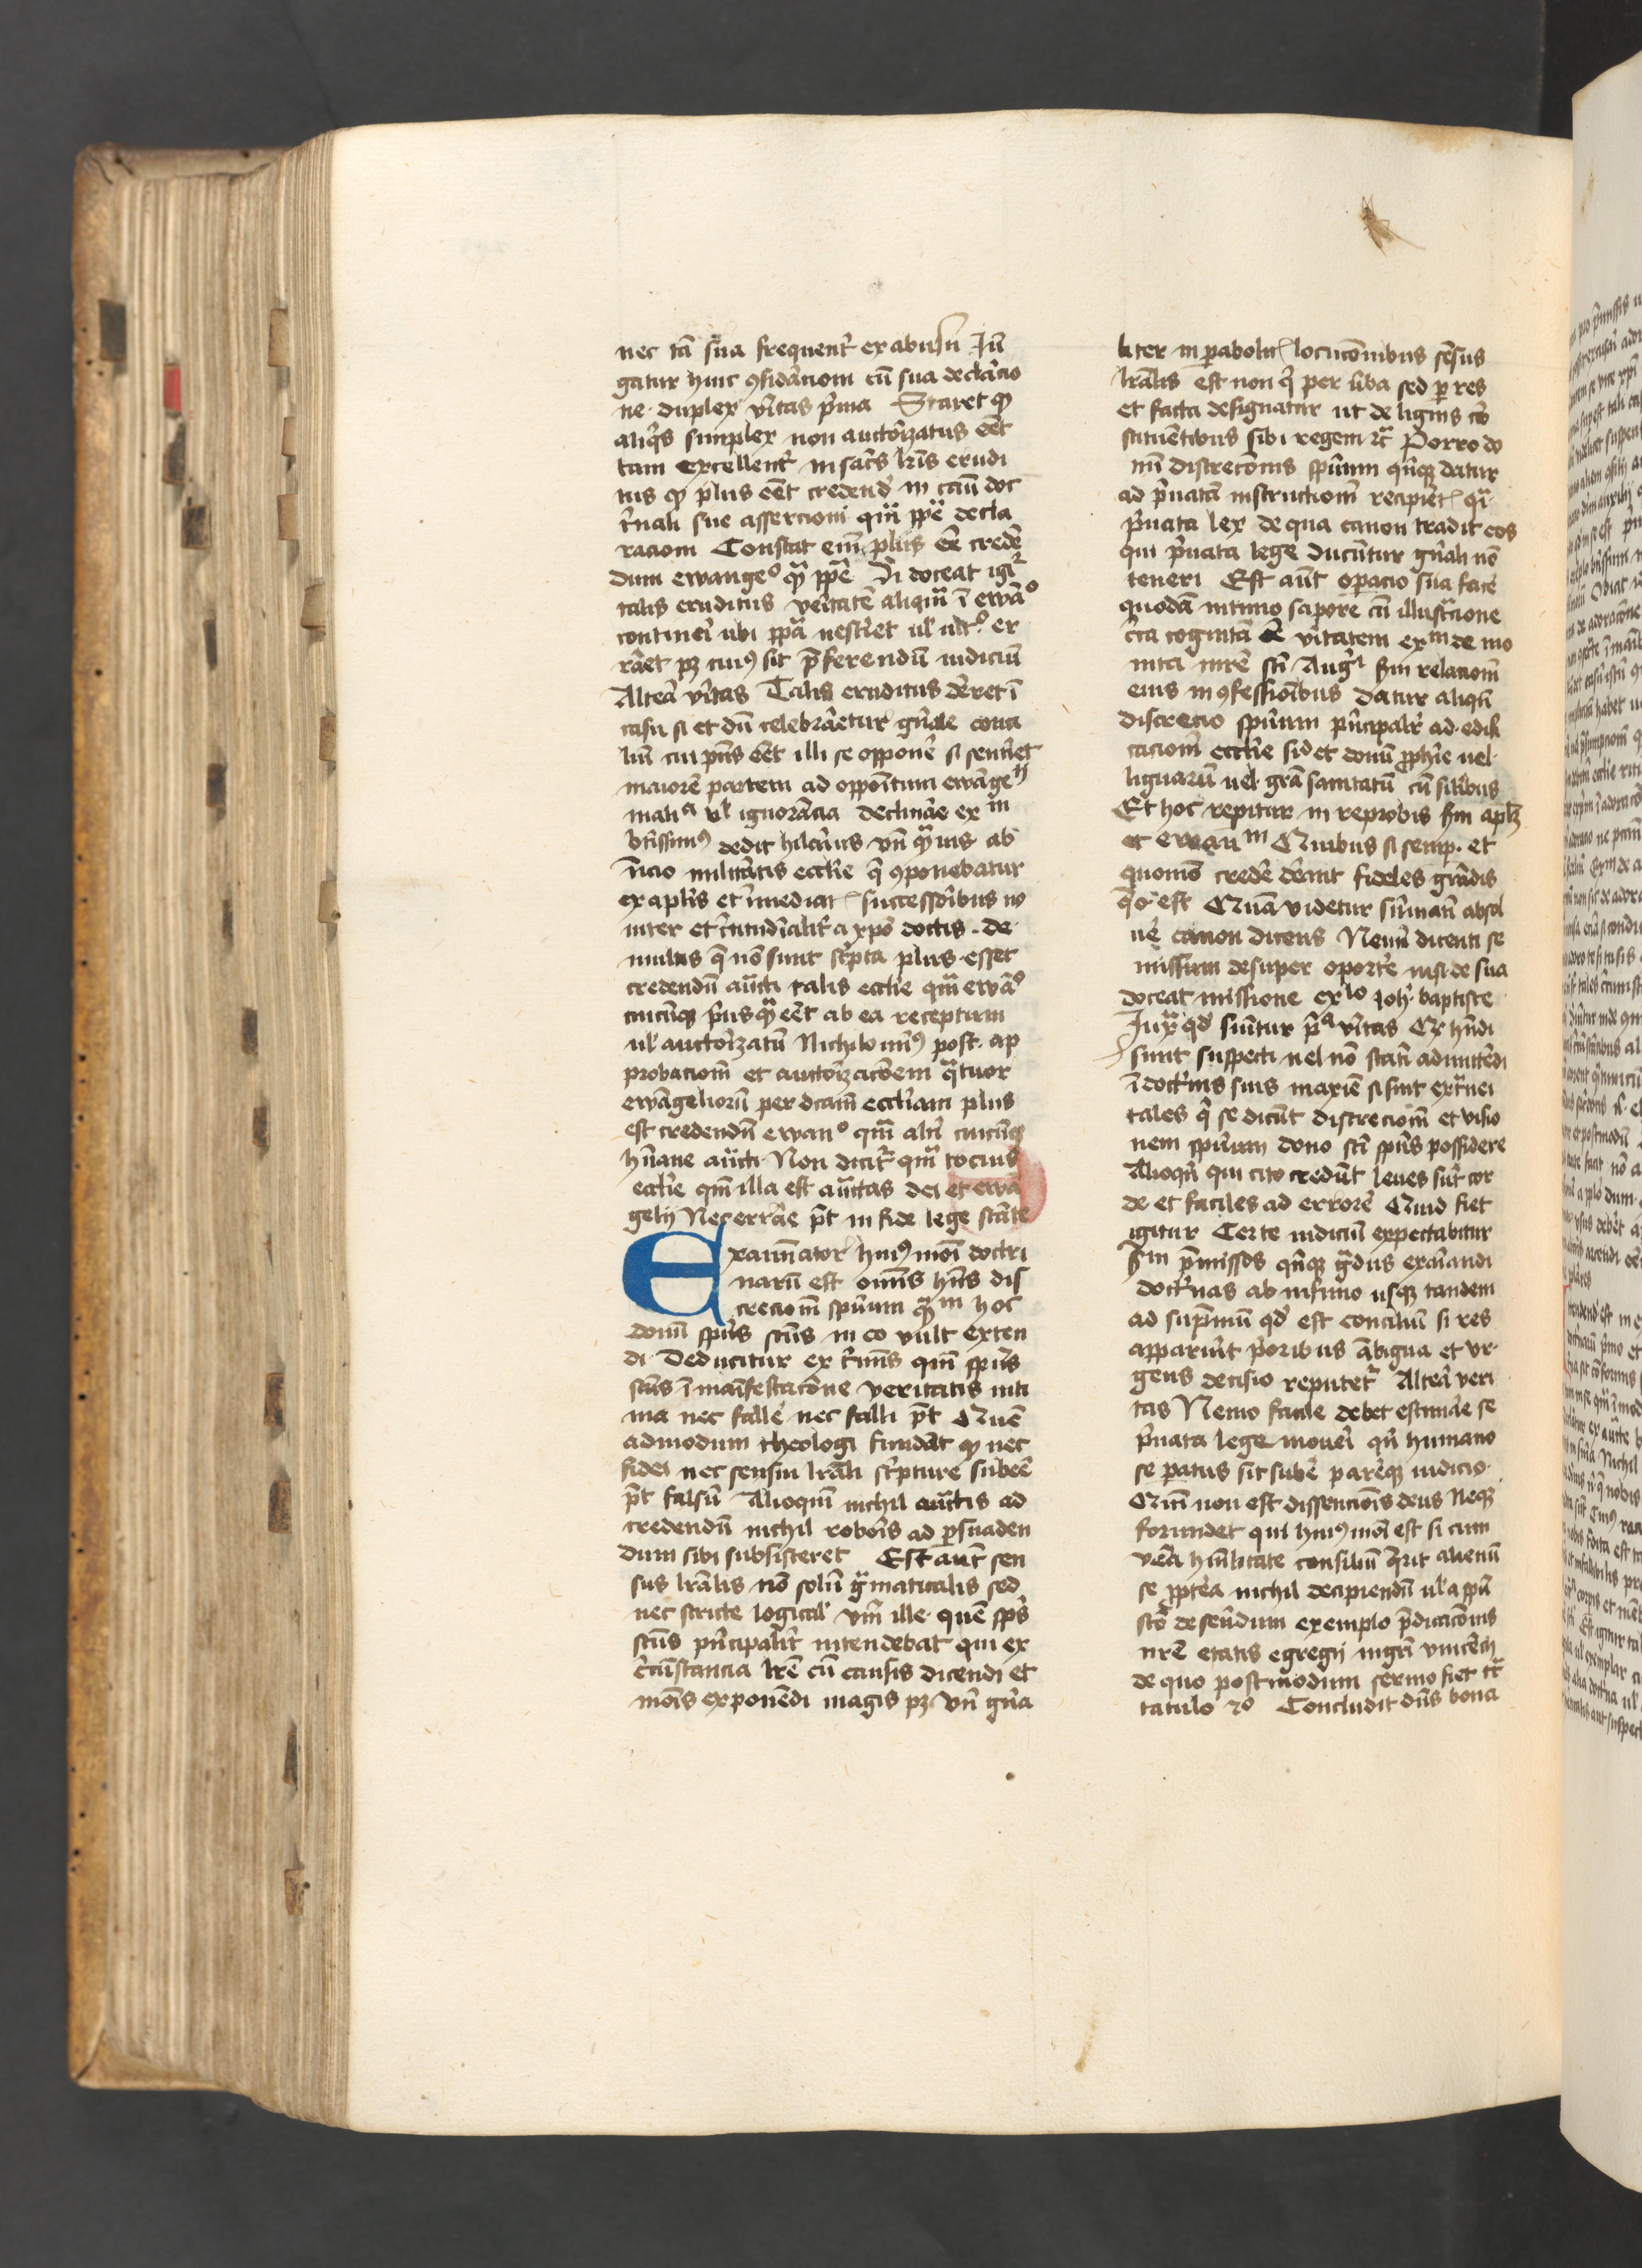 nec tā sūa frequent̄ ex abusu Jū
gatur huic ꝯsid̄acioni cū sua declācio
ne · duplex v̄itas p̄ma Staret ꝙ
aliq̄s simplex non auctōizatus eēt
tam excellent̄ in sac̄s lr̄is erudi
tus ꝙ plus eēt credend̄ in casu doc
t̄nali sue assercioni qm̄ ppē decla
racioni Constat em̄ plus eē credē
dum ewangeᵒ qᷓ ppē Si doceat igiᷣ
talis eruditus veritatē aliqm̄ ī ewāᵒ
contineī ubi ppā nesciēt ul̓ ult̄ᵒ er
rāet pꝫ cuiꝰ sit p̄ferendū iudiciū
Alteā v̄itas Talis eruditus dēret ī
casu si et dū celebrāetur gn̄ale conci
liū cui p̄ns eēt illi se opponē si sentīet
maiorē partem ad oppositum ewāgeᶦʲ
maliᵃ ul̓ ignorācia declināe exᵐ
btīssimꝰ dedit hilarius vn̄ qᷓuis ab
īicio militātis ecclīe q̄ ꝯponebatur
ex aplīs et īmediat̄ successoribus no
iter et c̄titudīalit̄ a xp̄o doctis · de
multis q̄ nō sunt sc̄pta plus esset
credendū auct̄i talis ecclīe qm̄ ewāᵒ
cuicūqꝫ p̄usqᷓ eēt ab ea receptum
ul̓ auctōizatū Nichilo minꝰ post · ap
probacionē et auctōizaciōem qᷓtuor
ewāgeliorū per dictam ecclīam plus
est credendū ewanᵒ qm̄ alt̄i cuicūqꝫ
hūane auct̄i · Non dicit̄ qm̄ tocius
ecclīe qm̄ illa est auct̄as dei et ewā
gelij Nec errāe p̄t in fide lege stāte
Examinator huiꝰmōi doctri
narū est om̄s hn̄s dis
crecionē spūum qᷓᵐ hoc
donū spūs scūs in eo vult exten
di Deducitur ex t̄minis qm̄ spūs
scūs ī manīfestacōne veritatis inti
ma nec fallē nec falli p̄t Quē
admodum theologi fundāt ꝙ nec
fidei nec sensui lrāli sc̄pture subēē
p̄t falsū Alioquī nichil auct̄is ad
credendū nichil roboīs ad ꝑsuaden
dum sibi subsisteret Est aut̄ sen
sus lrālis nō solū gᷓmaticalis sed
nec stricte logical̓ ymō ille · quē sp̄s
scūs p̄ncipalit̄ intendebat qui ex
c̄cūstancia lrē cū causis dicendi et
modis exponēdi magis pꝫ · vn̄ gn̄a
liter in ꝑabolic̄ locucōnibus sēsus
lrālis est non q̄ per v̄ba sed ꝑ res
et facta designatur ut de lignis cō
stituētibus sibi regem ⁊c̄ Porro do
nū discrecōnis spūum qn̄qꝫ datur
ad p̄uatā instructionē recipiēt̄ qī
p̄uata lex de qua canon tradit eos
qui p̄uata lege ducūtur gn̄ali nō
teneri Est aut̄ operacio sūa facē
quodā intimo sapore cū illustracione
c̄ta cognitā eē v̄itatem exᵐ de mo
nica mr̄e sci Augᶦ scd̄m relacionē
eius in ꝯfessiōibus datur aliqn̄
discrecio spūum p̄ncipalit̄ ad · edifi
cacionē ecclīe sic et donū ꝓphīe uel ·
liguarū uel · grā sanitatū cū silībus
Et hoc reperitur in reprobis scd̄m apl̄ꝫ
et ewanᵐ Quibus si semp · et
quomō credē dēant fideles grādis
qō est Quā videtur sūmatī absol
uē canon dicens Nemī dicenti se
missum desuper oportē nisi de sua
doceat missione exᶦᵒ Joh̄ · baptiste
Juxᷓ qd̄ sumitur pᷓᵃ v̄itas Qr̄ hn̄di
sunt suspecti uel nō statī admittēdi
ī doct̄nis suis maxīe si sint ext̄nei
tales q̄ se dicūt discrecionē et visio
nem spūum dono sci spūs possidere
Alioqn̄ qui cito credūt leues sūt cor
de et faciles ad errorē Quid fiet
igitur Certe iudiciū expectabitur
scd̄m p̄missos qn̄qꝫ gᷓdus exaīandi
doct̄nas ab infimo usqꝫ tandem
ad sup̄mū qd̄ est conciliū si res
apparuīt p̄oribus ābigua et vr ·
gens decisio reputetᷣ Alteā veri
tas Nemo facile debet estimāe se
p̄uata lege moueī qn̄ humano
se paratus sit subē parēqꝫ iudicio ·
Qm̄ non est dissencionis deus Neqꝫ
formidet qui huiꝰmōi est si cum
vēa hūilitate consiliū q̄rit alienū
se ꝓptēa nichil decipiendū ul̓ a spū
scō deserēdum exemplo p̄dicacōnis
nr̄e etatis egregij mgr̄i vincēcij
de quo postmodum sermo fiet tᷓc
tatulo 2ᵒ Concludit dn̄s bona